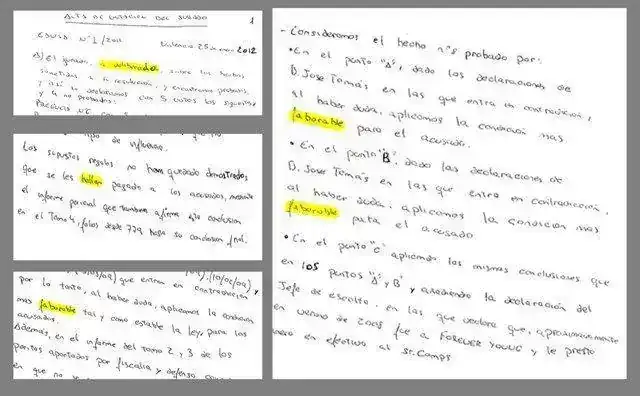 ACTA DE VOTACIÓN DEL JURADO 1
CAUSA Nº 1/2011 Valencia, 25 de enero 2012
El jurado, a delibrado, sobre los hechos
sometidos a su resolución, y encuentran probado,
y así lo declaramos con 5 votos los siguientes
y 4 no probados:
tipo de influencia.
Los supuestos regalos no han quedado demostrados
que se les hallan pagado a los acusados, mediante
el informe pericial que también afirma dicha conclusión
en el Tomo 4, folios desde 779 hasta su conclusión final.
que entran en contradicción y
por lo tanto, al haber duda, aplicamos la condición
mas faborable tal y como estable la ley, para los
acusados.
Además, en el informe del tomo 2 y 3 de los
peritos aportados por fiscalia y defensa
en que no se
- Consideramos el hecho nº5 probado por:
• En el punto "A", dado las declaraciones de
D. Jose Tomás en las que entra en contradicción,
al haber duda, aplicamos la condición mas
faborable para el acusado.
• En el punto "B", dado las declaraciones de
D. Jose Tomás en las que entra en contradicción,
al haber duda, aplicamos la condición mas
faborable para el acusado
• En el punto "C" aplicando las mismas conclusiones que
en los puntos "A" y B" y añadiendo la declaración del
Jefe de escolta, en las que declara que, aproximadamente
en verano de 2005 fue a FOREVER YOUNG y le presto
dinero en efectivo al Sr. Camps